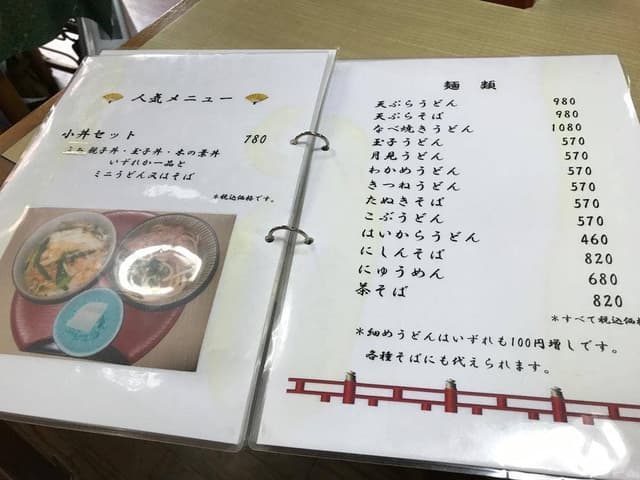 人気メニュー
小丼セット 780
親子丼・玉子丼・木の葉丼
いずれか一品と
ミニうどん又はそば
*税込価格です。
麺類
天ぷらうどん 980
天ぷらそば 980
なべ焼きうどん 1080
玉子うどん 570
月見うどん 570
わかめうどん 570
きつねうどん 570
たぬきそば 570
こぶうどん 570
はいからうどん 460
にしんそば 820
にゅうめん 680
茶そば 820
*すべて税込価格
*細めうどんはいずれも100円増しです。
各種そばにも代えられます。